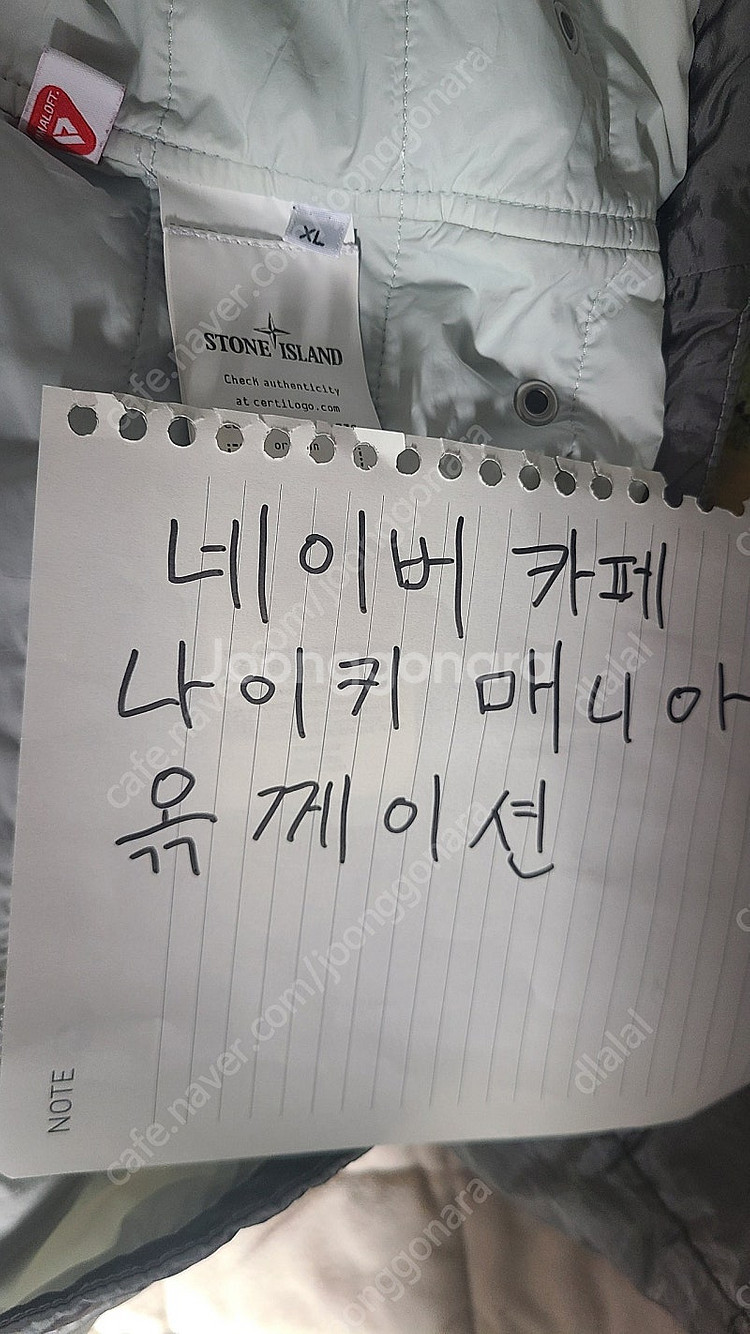 PRIMALOFT.
XL
STONE ISLAND
Check authenticity
at certilogo.com
네이버 카페
나이키 매니아
욖께이션
NOTE
Joonggonara
cafe.naver.com/joonggonara
dlalal